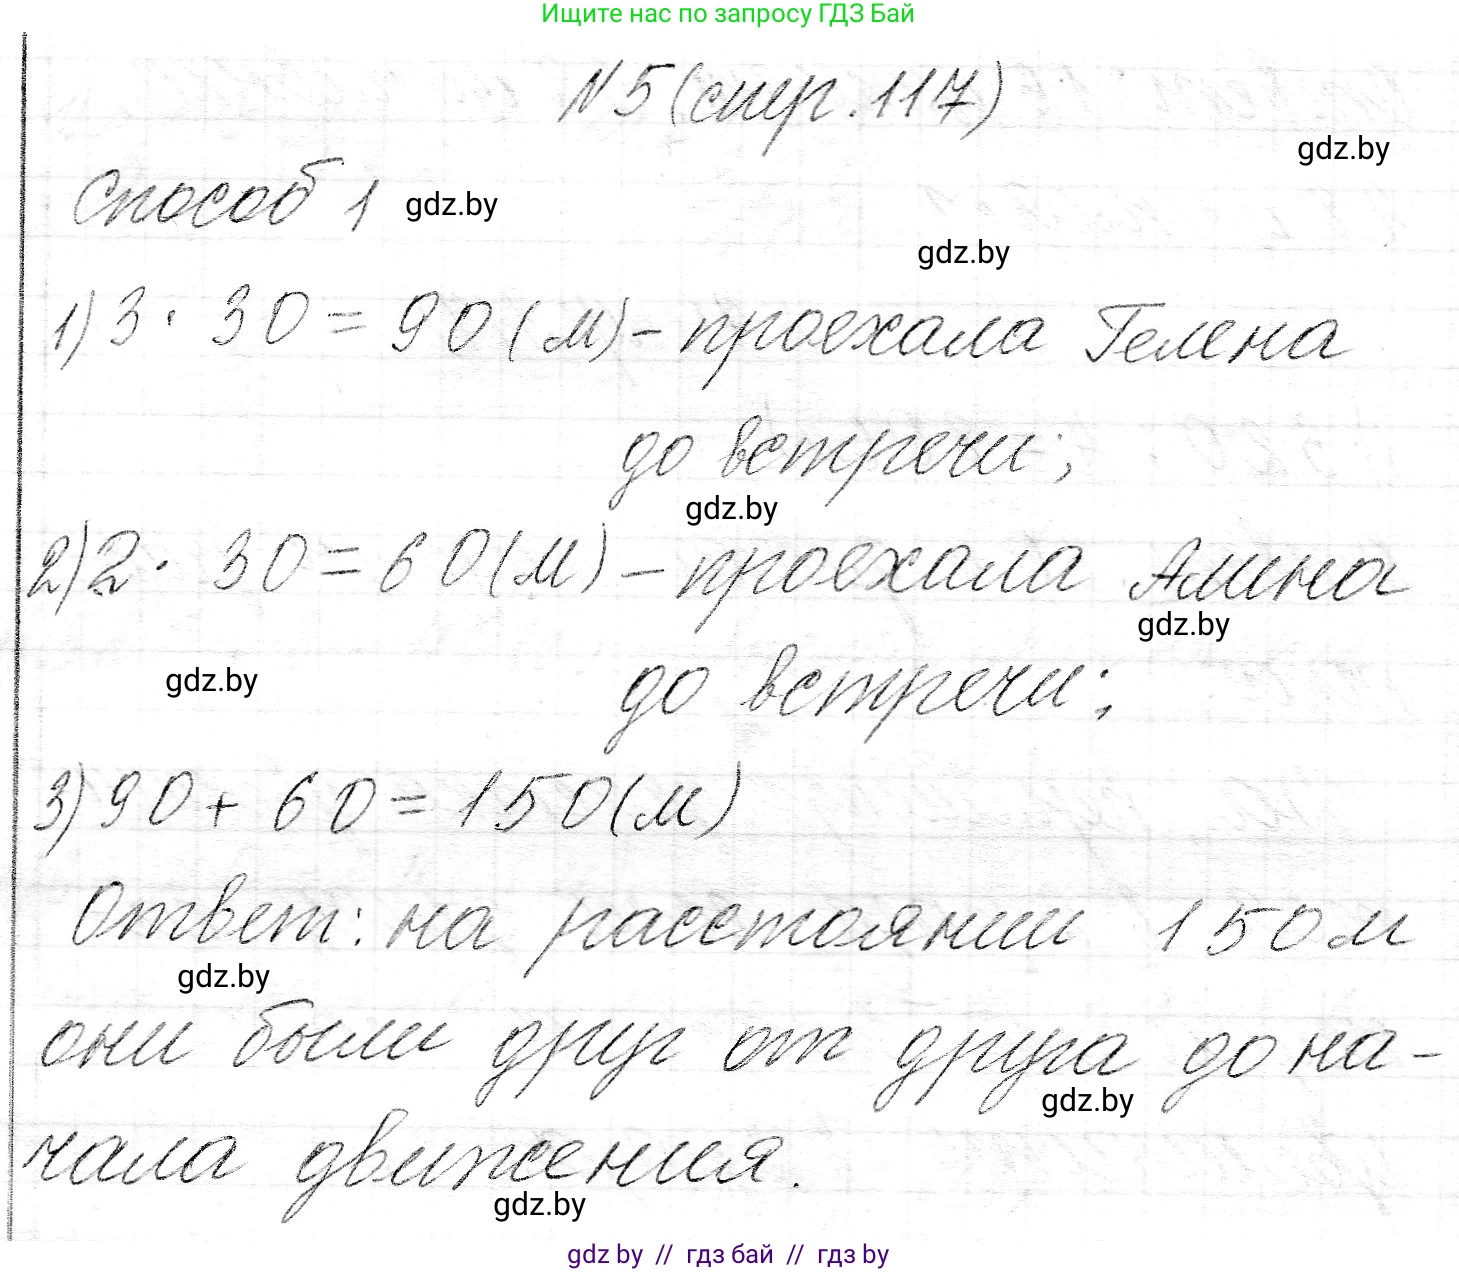 Ищите нас по запросу ГДЗ Бай
N 5 (стр. 117)
gdz.by
Способ 1 gdz.by
gdz.by
1) 3 · 30 = 90 (м) - проехала Гелена
до встречи;
gdz.by
2) 2 · 30 = 60 (м) - проехала Алина
gdz.by
gdz.by до встречи;
3) 90 + 60 = 150 (м)
Ответ: на расстоянии 150 м
gdz.by
они были друг от друга до на-
gdz.by
чала движения.
gdz.by
gdz by // гдз бай // гдз by